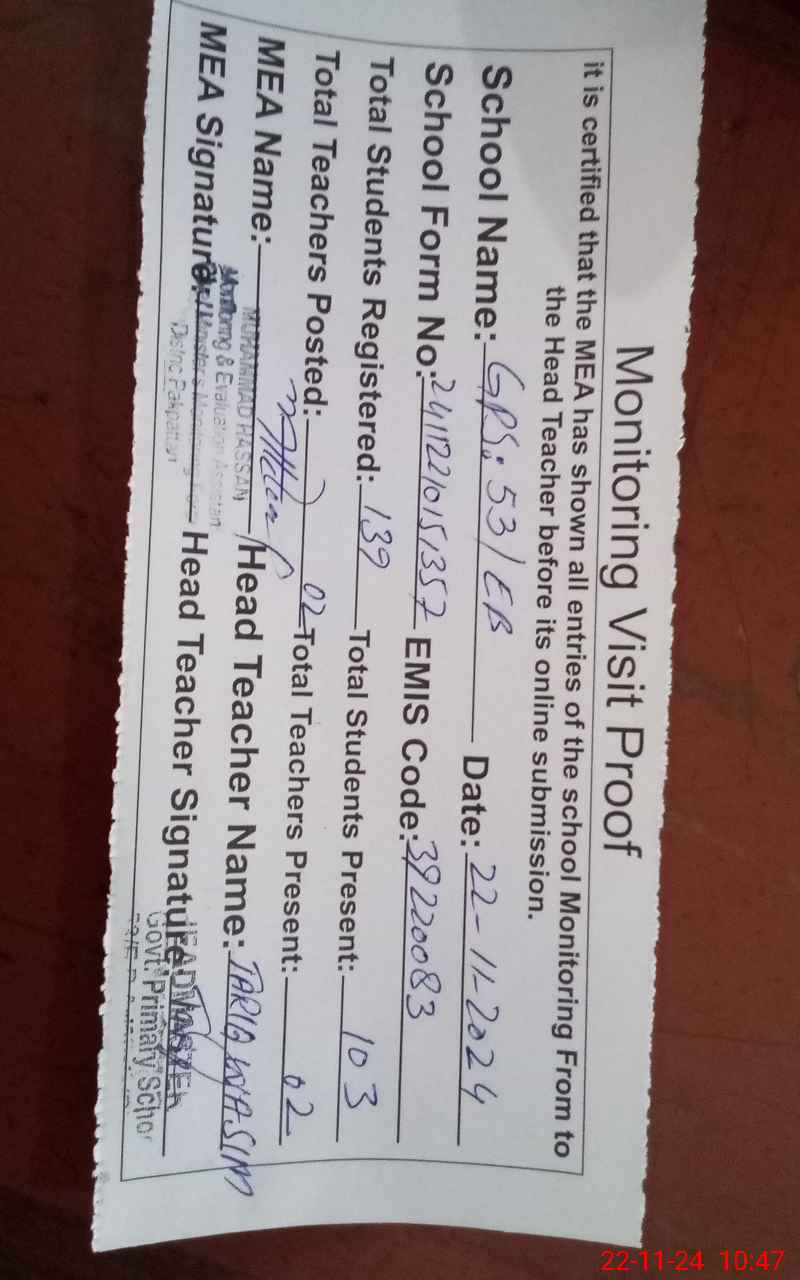 Monitoring Visit Proof
it is certified that the MEA has shown all entries of the school Monitoring From to
the Head Teacher before its online submission.
School Name: GPS: 53/EB Date: 22-11-2024
School Form No: 24112210151357 EMIS Code: 39220083
Total Students Registered: 139 Total Students Present: 103
Total Teachers Posted: 02 Total Teachers Present: 02
MEA Name: MUHAMMAD HASSAN Head Teacher Name: TARIQ WASIM
Monitoring & Evaluation Assistan
MEA Signature: Head Teacher Signature: HEADMASTER
Chief Minister's Monitoring Force
Distric Pakpattan
Govt. Primary Schoo
22-11-24 10:47